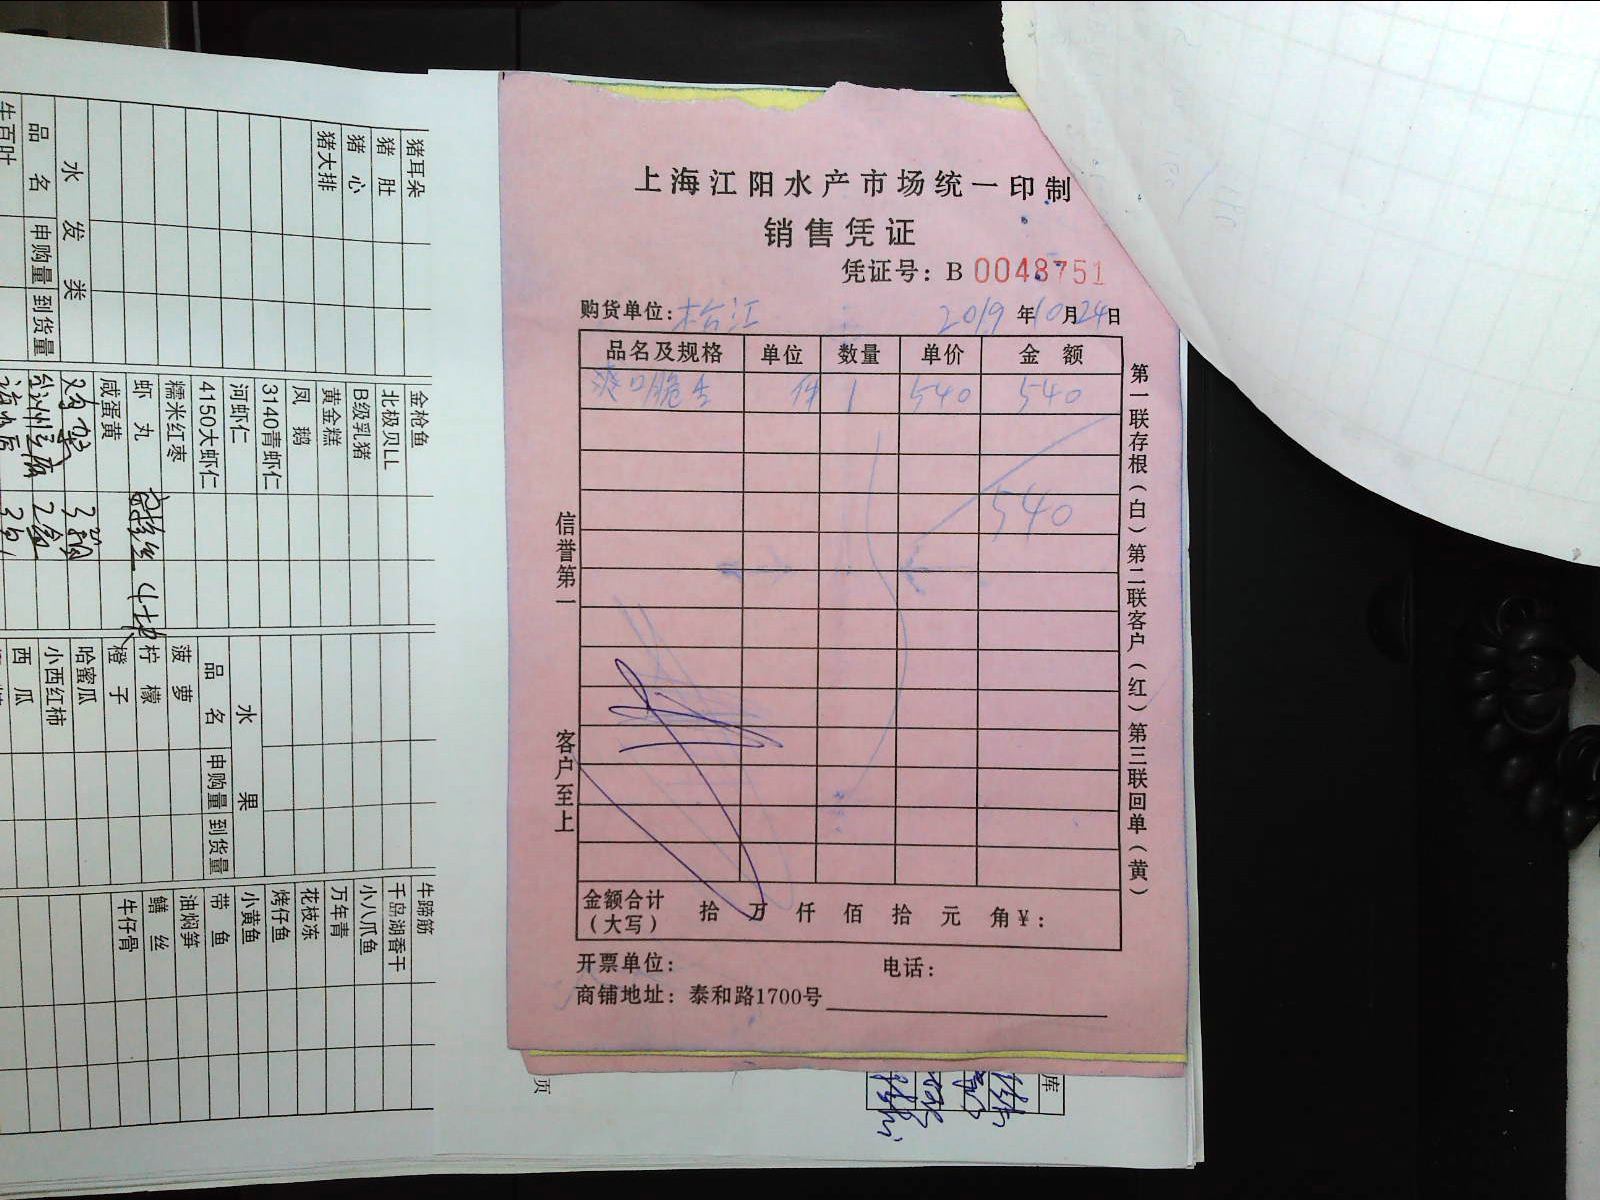 上海江阳水产市场统一印制
销售凭证
凭证号：B 0048751
购货单位：松江 2019年10月24日
品名及规格 单位 数量 单价 金额
爽口脆 件 1 540 540
540
信誉第一 客户至上
第一联存根（白）第二联客户（红）第三联回单（黄）
金额合计（大写） 拾 万 仟 佰 拾 元 角 ¥：
开票单位： 电话：
商铺地址：泰和路1700号
猪耳朵
猪肚
猪心
猪大排
水发类
品名 申购量 到货量
牛百叶
金枪鱼
北极贝LL
B级乳猪
黄金糕
凤鹅
3140青虾仁
河虾仁
4150大虾仁
糯米红枣
虾丸
咸蛋黄
水果
品名 申购量 到货量
菠萝
柠檬
橙子
哈蜜瓜
小西红柿
西瓜
牛蹄筋
千岛湖香干
小八爪鱼
万年青
花枝冻
烤仔鱼
小黄鱼
带鱼
油焖笋
鳝丝
牛仔骨
页
库